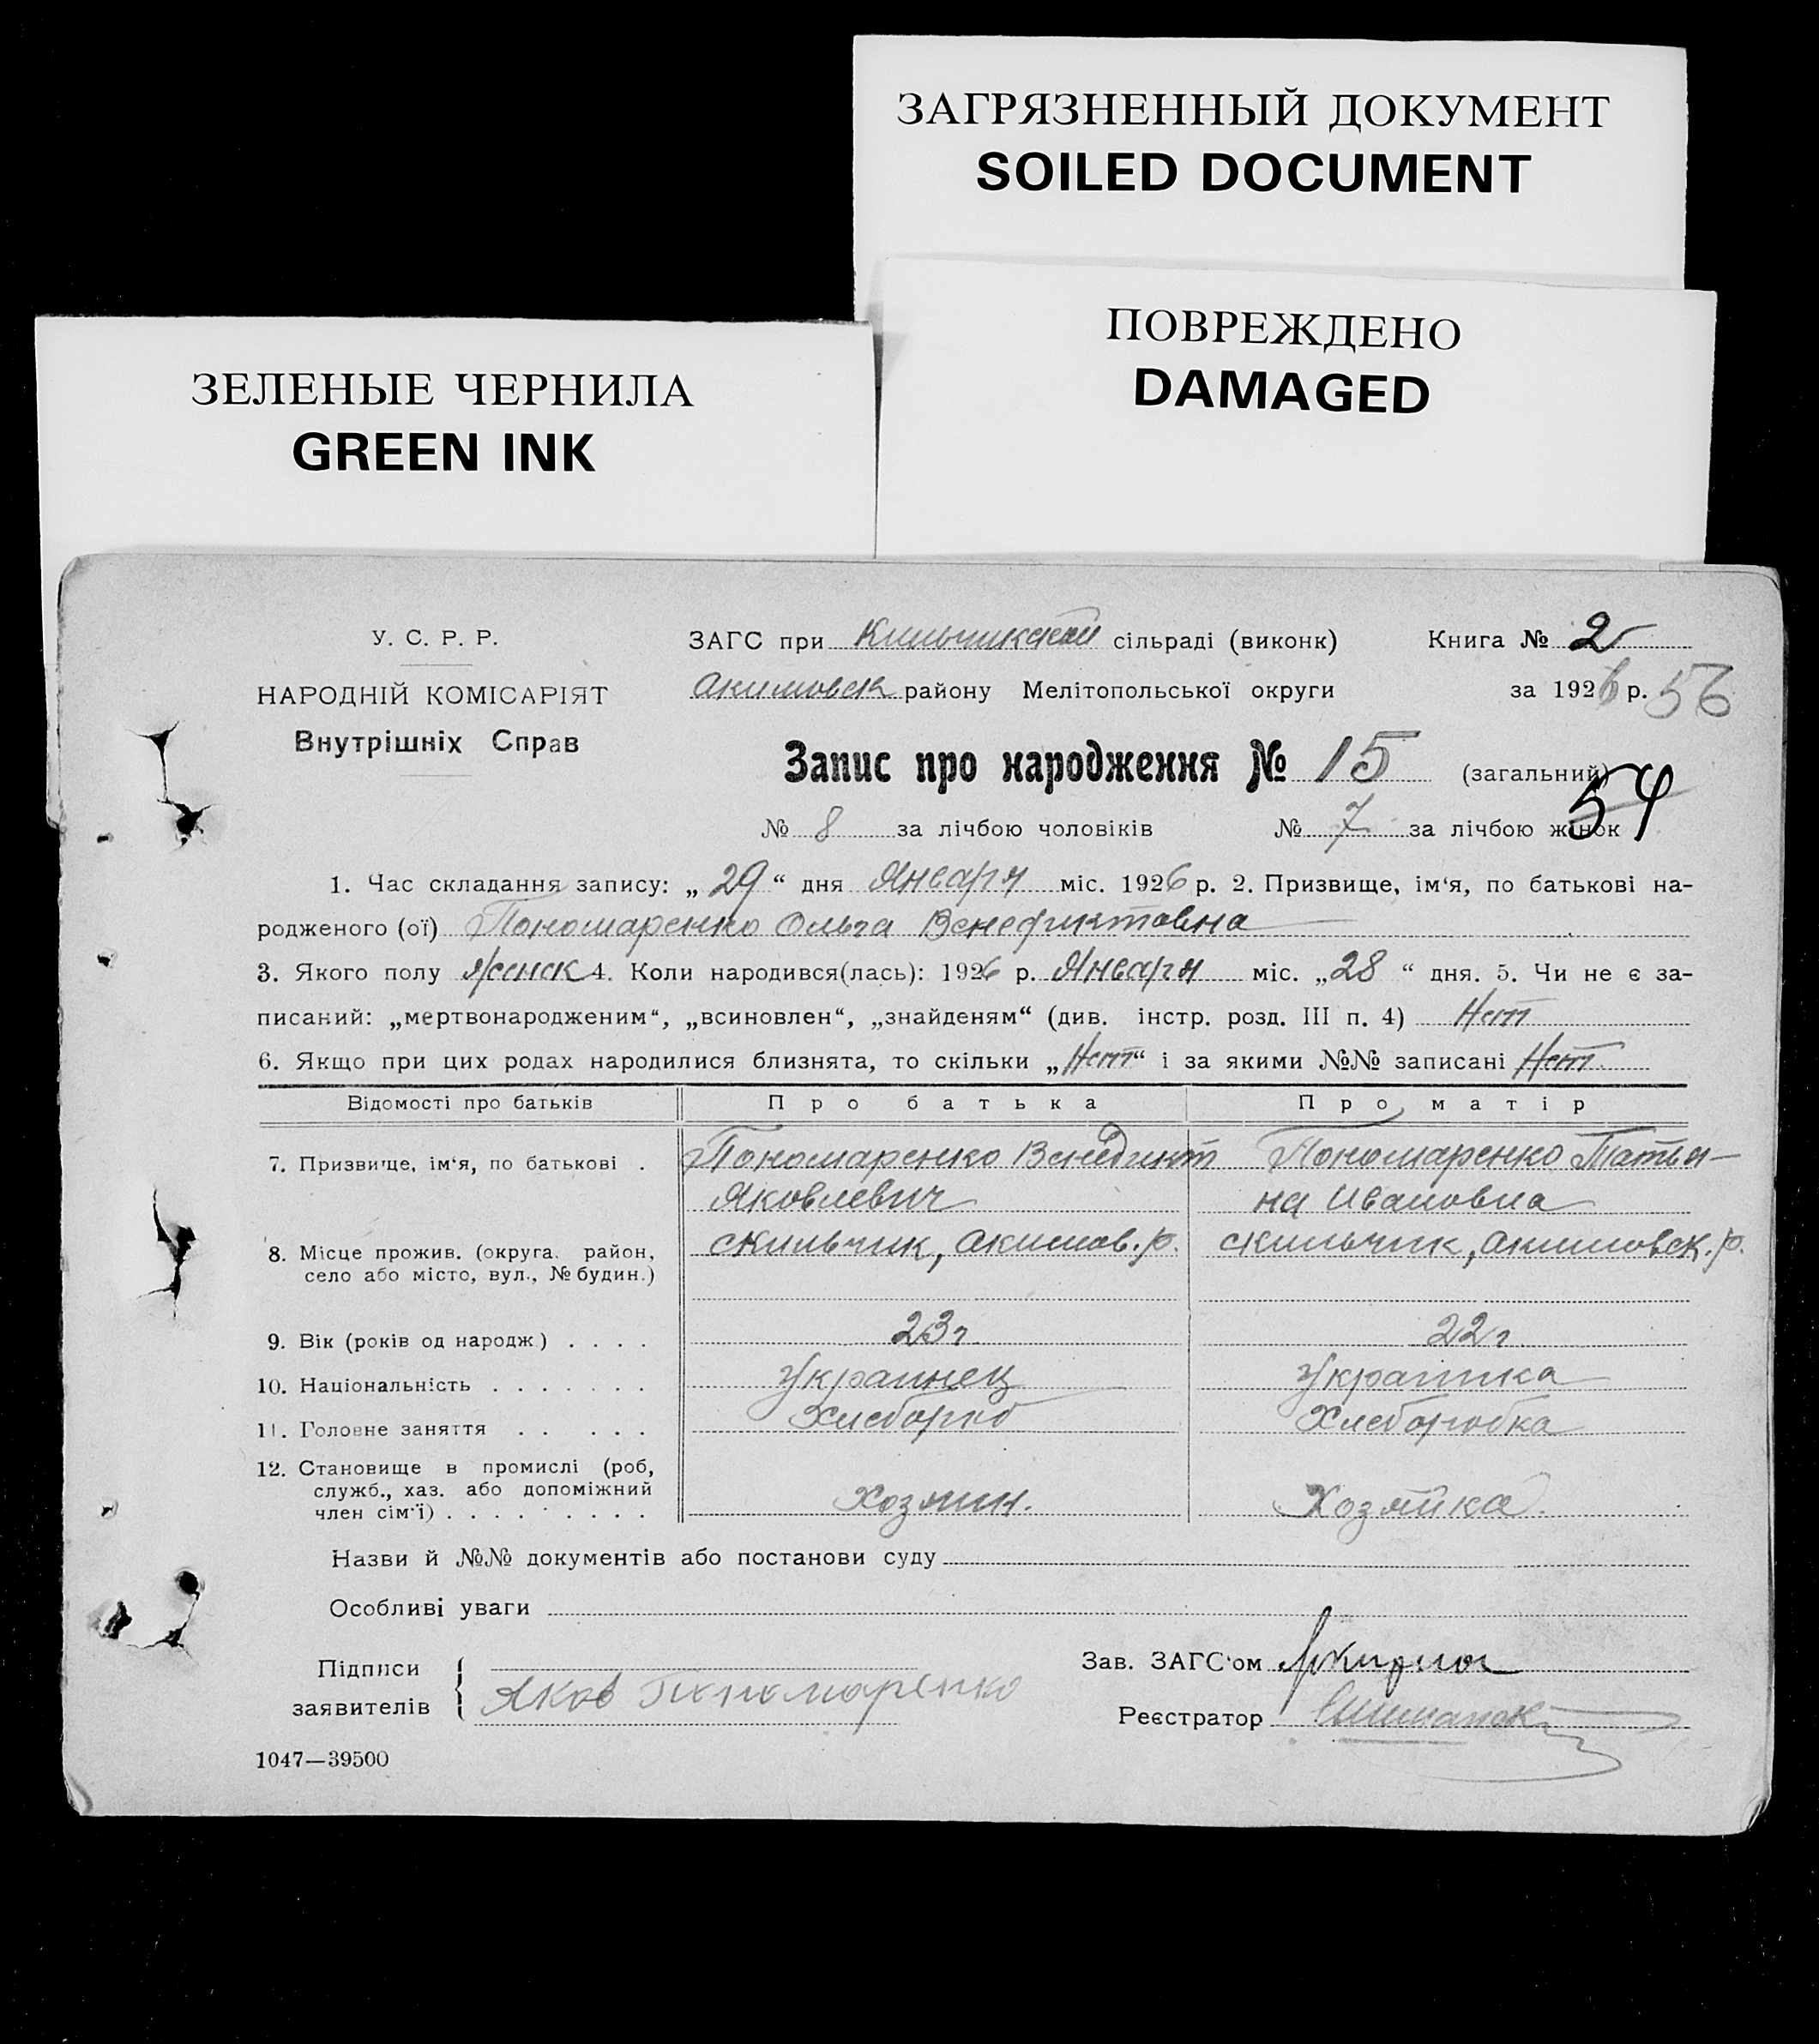 ЗАГРЯЗНЕННЫЙ ДОКУМЕНТ
SOILED DOCUMENT
ПОВРЕЖДЕНО
DAMAGED
ЗЕЛЕНЫЕ ЧЕРНИЛА
GREEN INK
У. С. Р. Р.
НАРОДНІЙ КОМІСАРІЯТ
Внутрішніх Справ
ЗАГС при сільраді (виконк) Книга № 2
Акимовск району Мелітопольської округи за 1926 р. 56
Запис про народження № 15 (загальний)
54
№ 8 за лічбою чоловіків № 7 за лічбою жінок
1. Час складання запису: „ 29 “ дня Января міс. 1926 р. 2. Призвище, ім‘я, по батькові на-
родженого (ої) Пономаренко Ольга Венедиктовна
3. Якого полу женск 4. Коли народився(лась): 1926 р. Января міс. „28 “ дня. 5. Чи не є за-
писаний: „мертвонародженим“, „всиновлен“, „знайденям“ (див. інстр. розд. III п. 4) Нет
6. Якщо при цих родах народилися близнята, то скільки „Нет“ і за якими №№ записані Нет
Відомості про батьків Про батька Про матір
7. Призвище, ім‘я, по батькові . Пономаренко Венедикт Пономаренко Татья-
Яковлевич на Ивановна
8. Місце прожив. (округа, район, село або місто, вул., № будин.) с Кильчик, Акимов. р. с Кильчик, Акимовск. р.
9. Вік (років од народж.) . . . . 23 г. 22 г.
10. Національність . . . . . . . Украинец Украинка
11. Головне заняття . . . . . Хлебороб Хлеборобка
12. Становище в промислі (роб, служб., хаз. або допоміжний член сім‘ї) . . . . . . . . Хозяин. Хозяйка.
Назви й №№ документів або постанови суду
Особливі уваги
Підписи заявителів { Яков Пономаренко
Зав. ЗАГС‘ом
Реєстратор
1047—39500